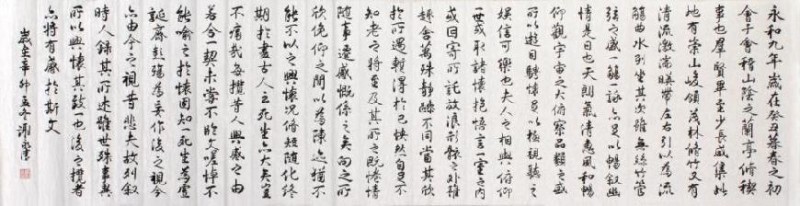 永和九年歲在癸丑暮春之初
會于會稽山陰之蘭亭脩稧
事也羣賢畢至少長咸集此
地有崇山峻領茂林脩竹又有
清流激湍暎帶左右引以為流
觴曲水列坐其次雖無絲竹管
弦之盛一觴一詠亦足以暢敘幽
情是日也天朗氣清惠風和暢
仰觀宇宙之大俯察品類之盛
所以遊目騁懷足以極視聽之
娛信可樂也夫人之相與俯仰
一世或取諸懷抱悟言一室之內
或因寄所託放浪形骸之外雖
趣舍萬殊靜躁不同當其欣
於所遇暫得於己怏然自足不
知老之將至及其所之既倦情
隨事遷感慨係之矣向之所
欣俛仰之間以為陳迹猶不
能不以之興懷況脩短隨化終
期於盡古人云死生亦大矣豈
不痛哉每攬昔人興感之由
若合一契未嘗不臨文嗟悼不
能喻之於懷固知一死生為虛
誕齊彭殤為妄作後之視今
亦由今之視昔悲夫故列敘
時人錄其所述雖世殊事異
所以興懷其致一也後之攬者
亦將有感於斯文
歲在辛卯孟冬